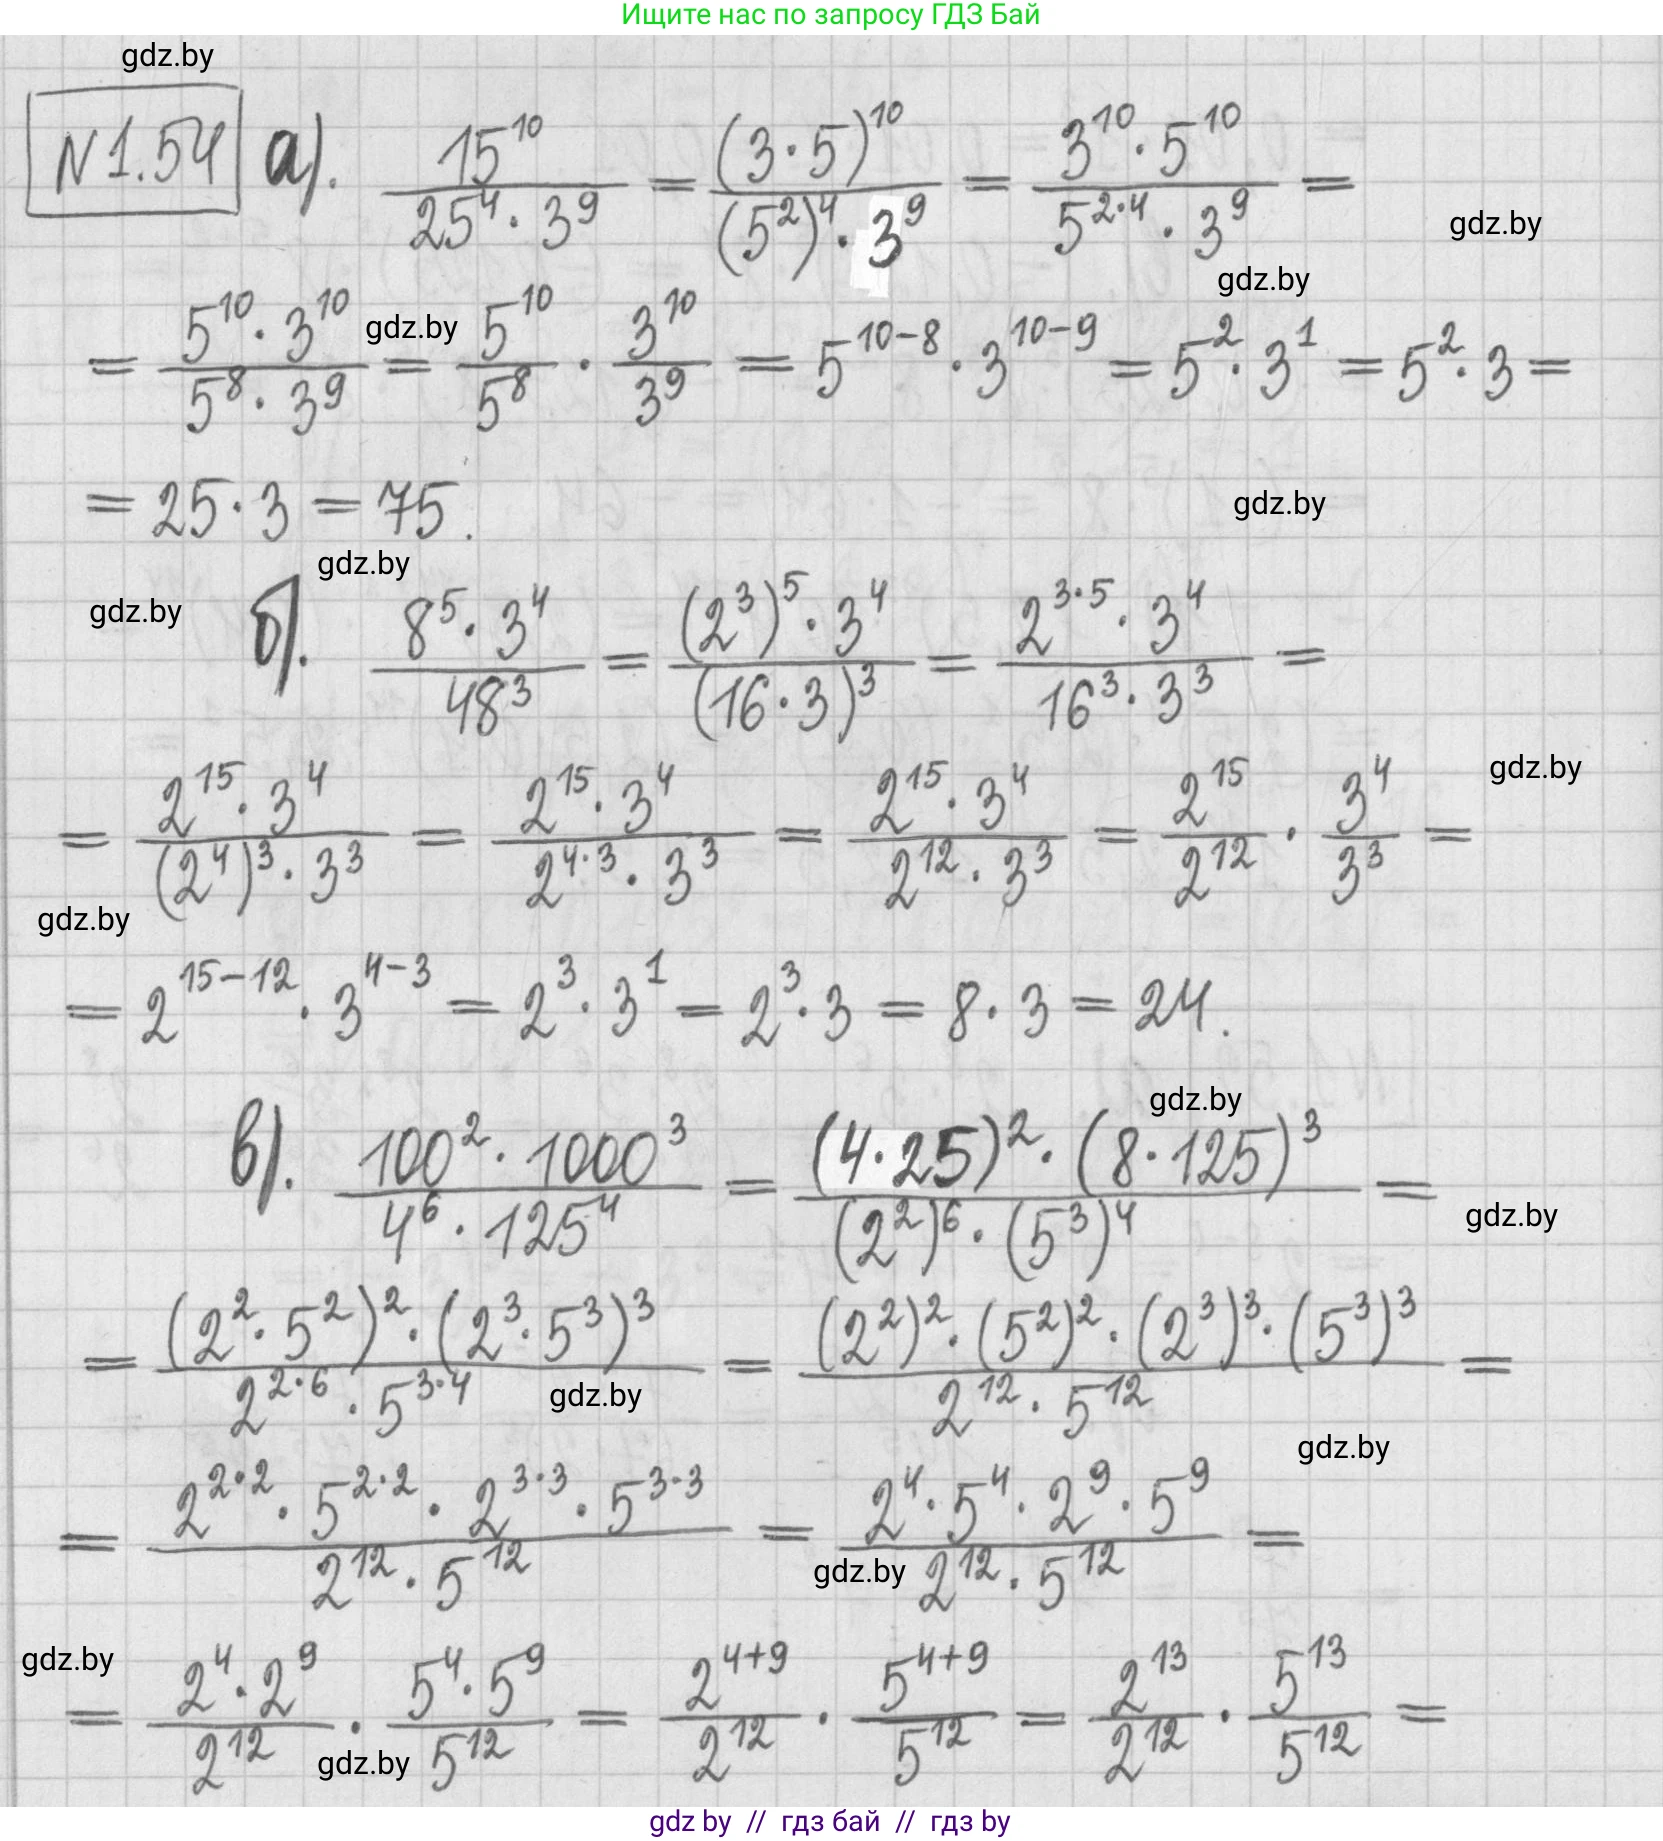 Ищите нас по запросу ГДЗ Бай
gdz.by
N1.54 а). 15^10/(25^4 · 3^9) = (3 · 5)^10/((5^2)^4 · 3^9) = (3^10 · 5^10)/(5^(2·4) · 3^9) =
gdz.by
gdz.by
= (5^10 · 3^10)/(5^8 · 3^9) = 5^10/5^8 · 3^10/3^9 = 5^(10-8) · 3^(10-9) = 5^2 · 3^1 = 5^2 · 3 =
gdz.by
= 25 · 3 = 75.
gdz.by
gdz.by
gdz.by
б). (8^5 · 3^4)/48^3 = ((2^3)^5 · 3^4)/(16 · 3)^3 = (2^(3·5) · 3^4)/(16^3 · 3^3) =
gdz.by
= (2^15 · 3^4)/((2^4)^3 · 3^3) = (2^15 · 3^4)/(2^(4·3) · 3^3) = (2^15 · 3^4)/(2^12 · 3^3) = 2^15/2^12 · 3^4/3^3 =
gdz.by
= 2^(15-12) · 3^(4-3) = 2^3 · 3^1 = 2^3 · 3 = 8 · 3 = 24.
gdz.by
в). (100^2 · 1000^3)/(4^6 · 125^4) = ((4 · 25)^2 · (8 · 125)^3)/((2^2)^6 · (5^3)^4) =
gdz.by
= ((2^2 · 5^2)^2 · (2^3 · 5^3)^3)/(2^(2·6) · 5^(3·4)) = ((2^2)^2 · (5^2)^2 · (2^3)^3 · (5^3)^3)/(2^12 · 5^12) =
gdz.by
gdz.by
= (2^(2·2) · 5^(2·2) · 2^(3·3) · 5^(3·3))/(2^12 · 5^12) = (2^4 · 5^4 · 2^9 · 5^9)/(2^12 · 5^12) =
gdz.by
gdz.by
= (2^4 · 2^9)/2^12 · (5^4 · 5^9)/5^12 = 2^(4+9)/2^12 · 5^(4+9)/5^12 = 2^13/2^12 · 5^13/5^12 =
gdz.by
gdz by // гдз бай // гдз by